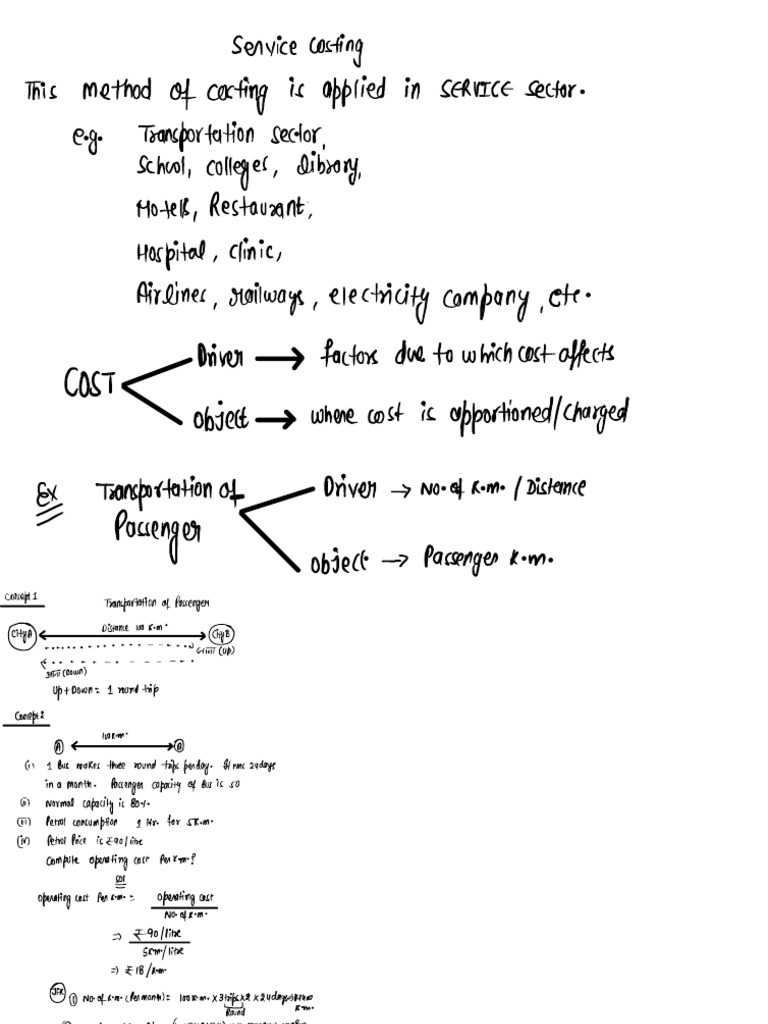 Service Costing
This method of costing is applied in SERVICE sector.
e.g. Transportation sector,
School, colleges, library,
Hotels, Restaurant,
Hospital, clinic,
Airlines, railways, electricity company, etc.
COST
Driver → factors due to which cost affects
Object → where cost is apportioned/charged
Ex Transportation of Passenger
Driver → No. of K.m. / Distance
Object → Passenger K.m.
Concept 1
Transportation of Passenger
City A
Distance 100 K.m.
City B
(Up)
(Down)
Up + Down = 1 round trip
Concept 2
100 K.m.
A
B
(i) 1 Bus makes three round trips per day. It runs 24 days
in a month. Passenger capacity of Bus is 50
(ii) Normal capacity is 80%.
(iii) Petrol consumption 1 ltr. for 5 K.m.
(iv) Petrol Price is ₹90/litre
Compute operating cost per K.m.?
Sol
Operating cost Per K.m. = Operating cost
No. of K.m.
⇒ ₹90/litre
5 Km./litre
⇒ ₹18/K.m.
(i) No. of K.m. (Per month) = 100 K.m. × 3 trips × 2 × 24 days
K.m.
Round